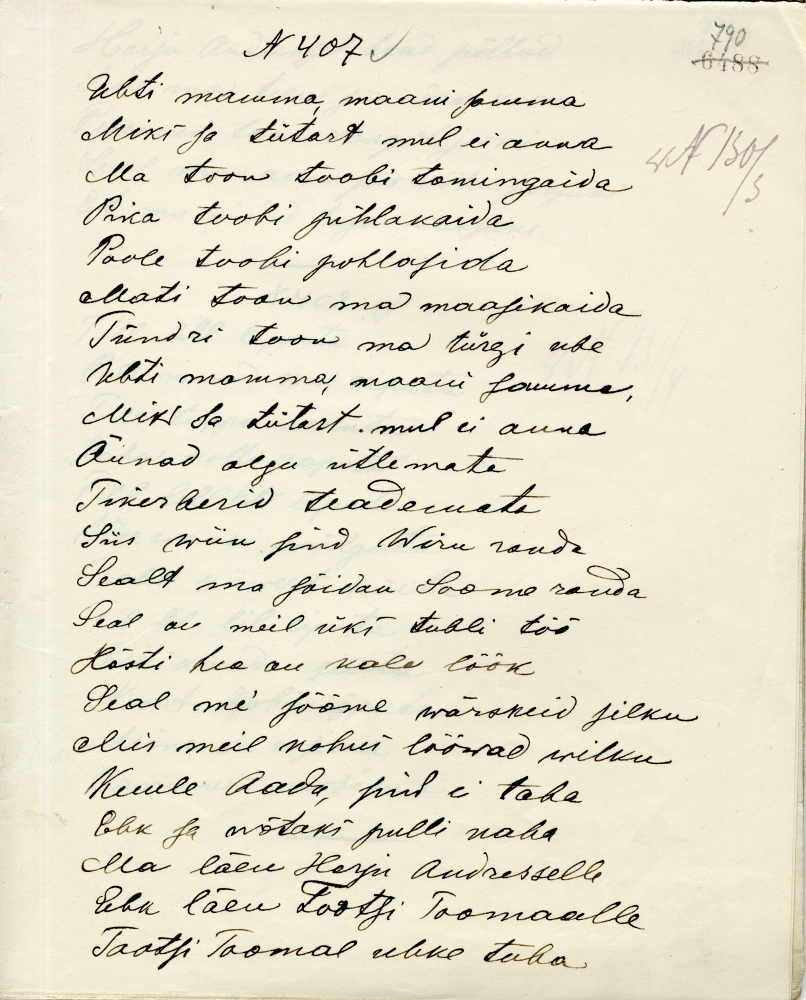 N 407
790
6488
N 130/3
Ubti mamma, maani samma
Miks sa tütart mul ei anna
Ma toon toobi tomingaida
Pika toobi pihlakaida
Poole toobi pohlasida
Mati toon ma maasikaida
Tündri toon ma türgi ube
Ubti mamma, maani samma,
Miks sa tütart mul ei anna
Äunad olgu ütlemata
Tikerberid teademata
Siis wiin sind Wiru randa
Sealt ma sõidan Soome randa
Seal on meil üks tubli töö
Hästi hea on kala löök
Seal me sööme wärskeid silku
Mis meil kohus lööwad wilku
Kuule Aadu, sind ei taha
Ehk sa wõtaks pulli naha
Ma läen Harju Andresselle
Ehk läen Tootsi Toomaalle
Tootsi Toomal uhke tuba